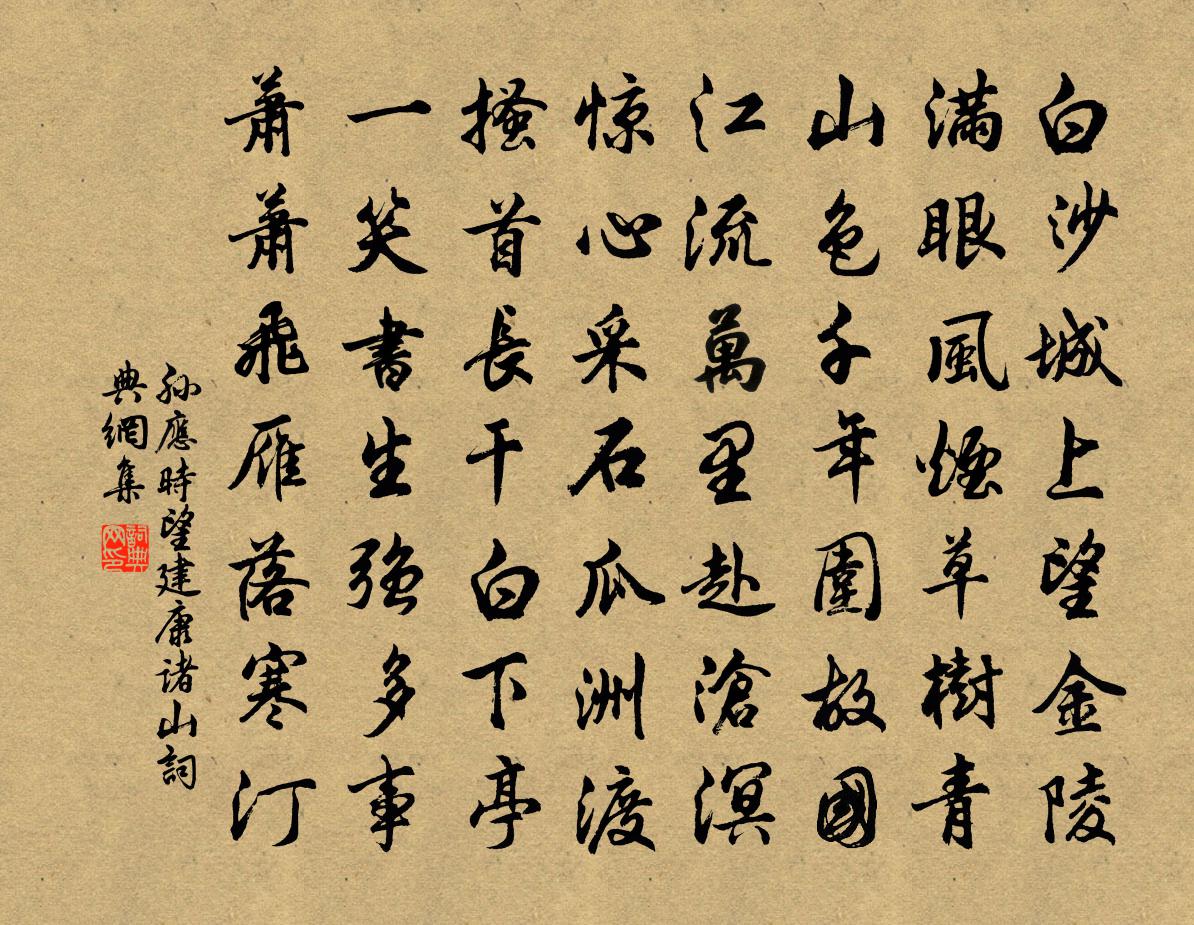 白沙城上望金陵
满眼風煙草樹青
山色千年圍故國
江流萬里赴滄溟
惊心采石瓜洲渡
搔首長干白下亭
一笑書生强多事
蕭蕭飛雁落寒汀
孙應時望建康诸山詞
典網集
詞典
网印